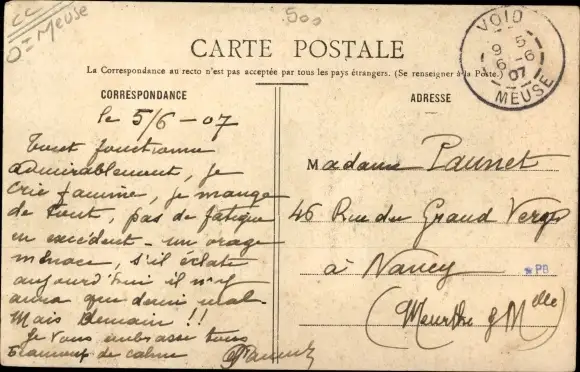 CC
Dⁿ= Meuse
500
CARTE POSTALE
La Correspondance au recto n'est pas acceptée par tous les pays étrangers. (Se renseigner à la Poste.)
VOID
9 5
6 -6
07
MEUSE
CORRESPONDANCE
le 5/6 - 07
Tout fonctionne
admirablement, je
crie famine, je mange
de tout, pas de fatigue
en excédent - un orage
menace, s'il éclate
aujourd'hui il n'y
aura que demi mal.
Mais Demain !!
Je vous embrasse tous
beaucoup de calme
ADRESSE
Madame Paunet
46 Rue du Grand Verger
à Nancy
(Meurthe & Mlle)
PB